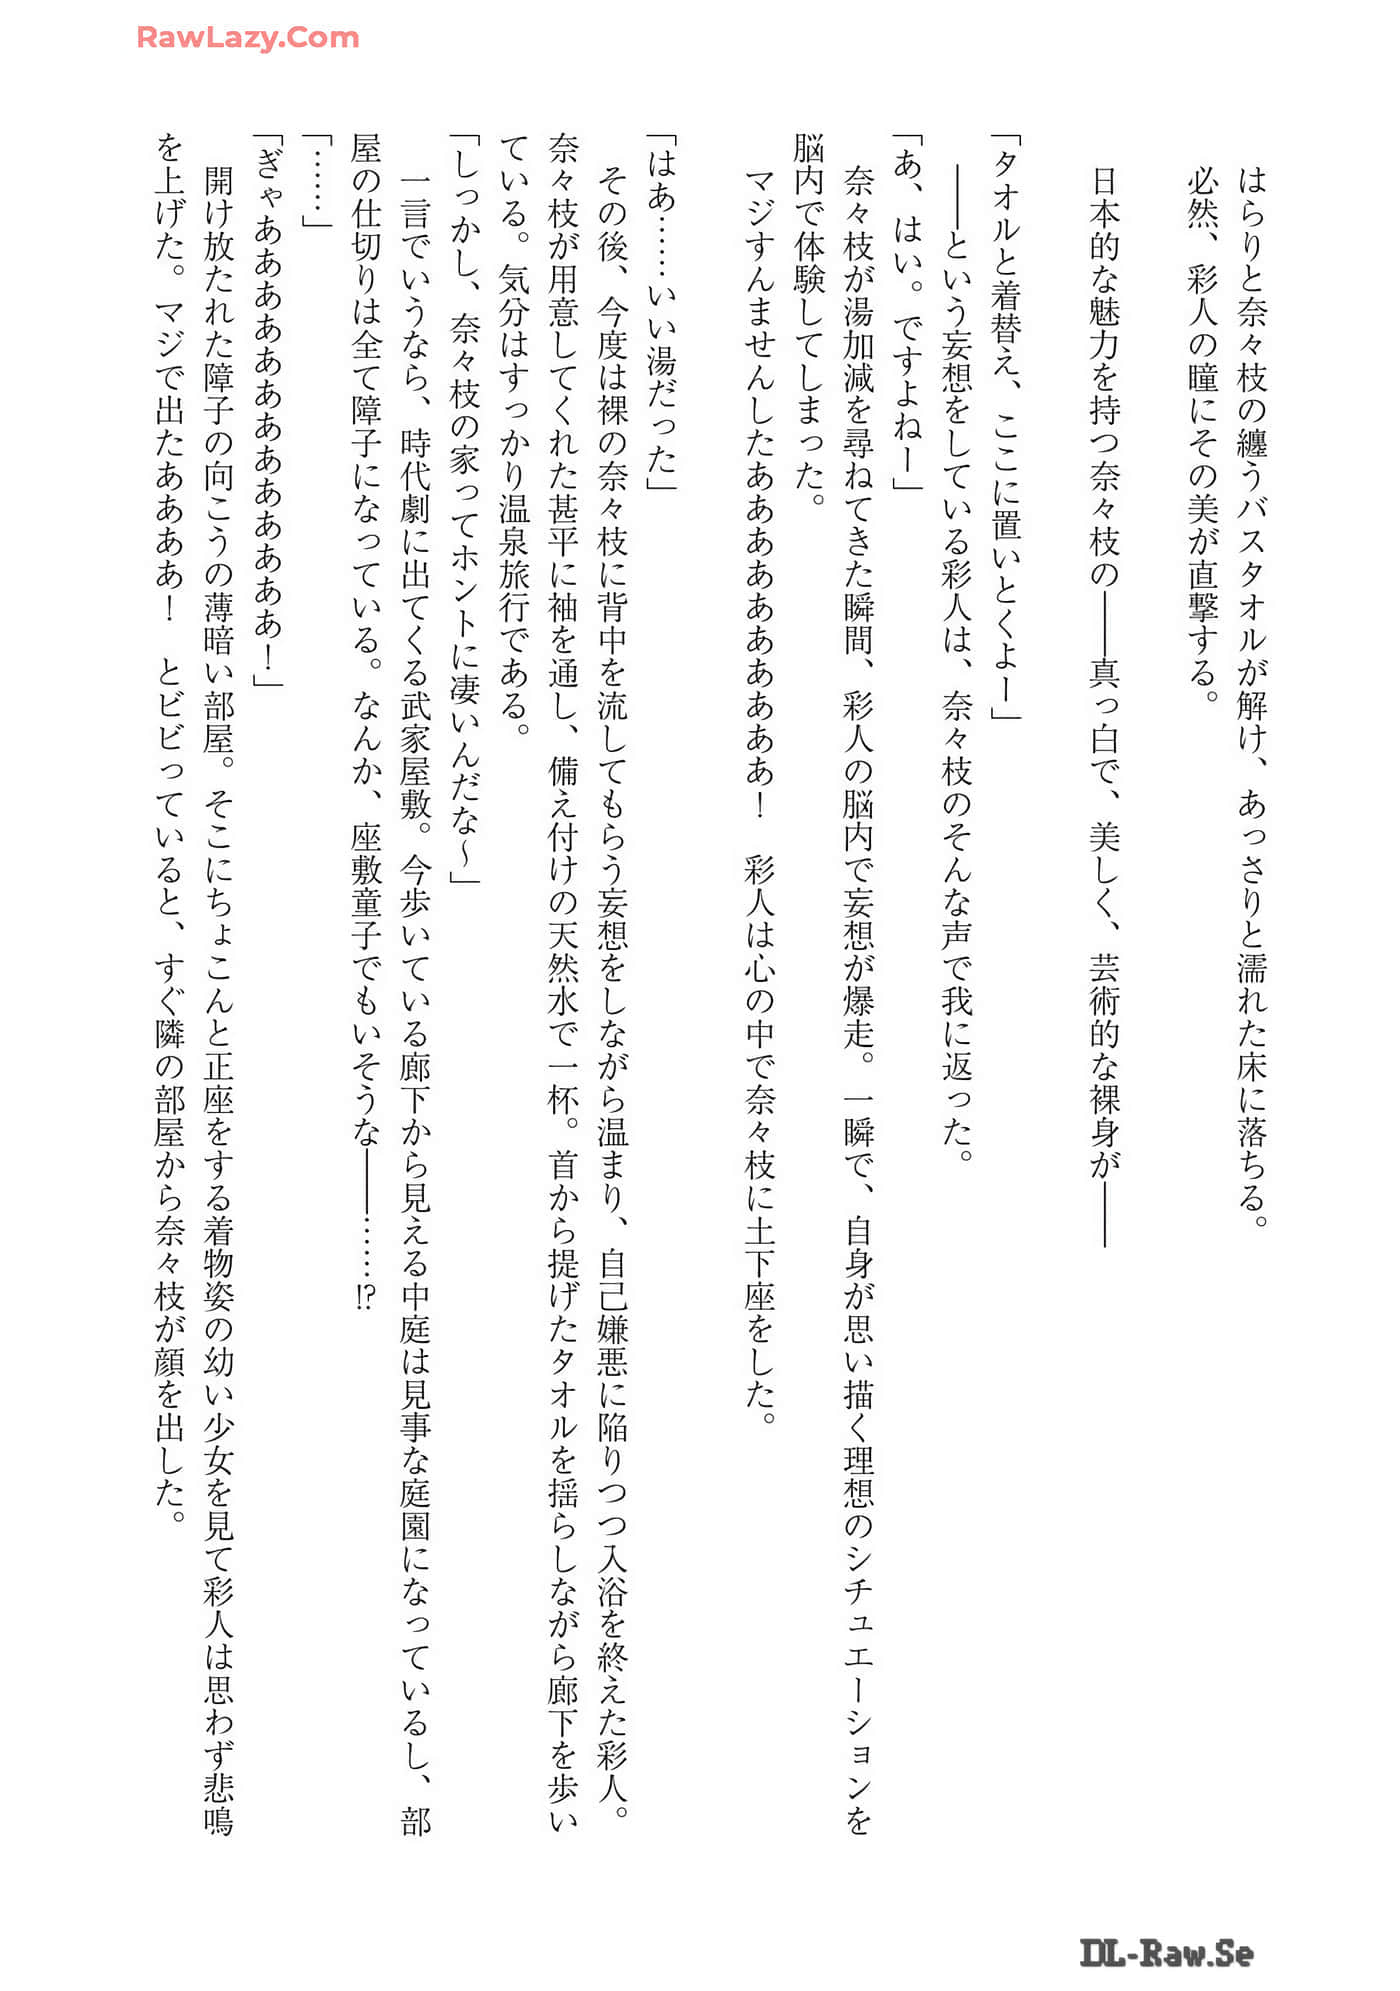 RawLazy.Com
はらりと奈々枝の纏うバスタオルが解け、あっさりと濡れた床に落ちる。
必然、彩人の瞳にその美が直撃する。
日本的な魅力を持つ奈々枝の――真っ白で、美しく、芸術的な裸身が――
「タオルと着替え、ここに置いとくよー」
――という妄想をしている彩人は、奈々枝のそんな声で我に返った。
「あ、はい。ですよねー」
奈々枝が湯加減を尋ねてきた瞬間、彩人の脳内で妄想が爆走。一瞬で、自身が思い描く理想のシチュエーションを
脳内で体験してしまった。
マジすんませんしたあああああああああ！　彩人は心の中で奈々枝に土下座をした。
「はあ……いい湯だった」
その後、今度は裸の奈々枝に背中を流してもらう妄想をしながら温まり、自己嫌悪に陥りつつ入浴を終えた彩人。
奈々枝が用意してくれた甚平に袖を通し、備え付けの天然水で一杯。首から提げたタオルを揺らしながら廊下を歩い
ている。気分はすっかり温泉旅行である。
「しっかし、奈々枝の家ってホントに凄いんだな～」
一言でいうなら、時代劇に出てくる武家屋敷。今歩いている廊下から見える中庭は見事な庭園になっているし、部
屋の仕切りは全て障子になっている。なんか、座敷童子でもいそうな――……!?
「……」
「ぎゃあああああああああああああ！」
開け放たれた障子の向こうの薄暗い部屋。そこにちょこんと正座をする着物姿の幼い少女を見て彩人は思わず悲鳴
を上げた。マジで出たああああ！　とビビっていると、すぐ隣の部屋から奈々枝が顔を出した。
DL-Raw.Se